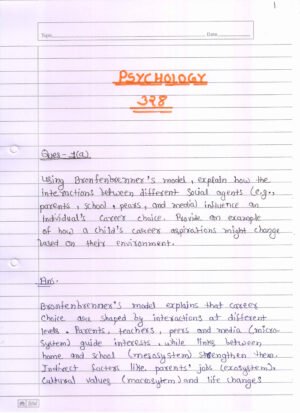 1
Topic
Date
PSYCHOLOGY
328
Ques - 1(a)
Using Bronfenbrenner's model, explain how the
interactions between different social agents (e.g.,
parents, school, pears, and media) influence an
individual's career choice. Provide an example
of how a child's career aspirations might change
based on their environment.
Ans.
Bronfenbrenner's model explains that career
choice are shaped by interactions at different
levels. Parents, teachers, peers and media (micro-
system) guide interests, while links between
home and school (mesosystem) strengthen them.
Indirect factors like parents' jobs (exosystem).
Cultural values (macrosystem) and life changes